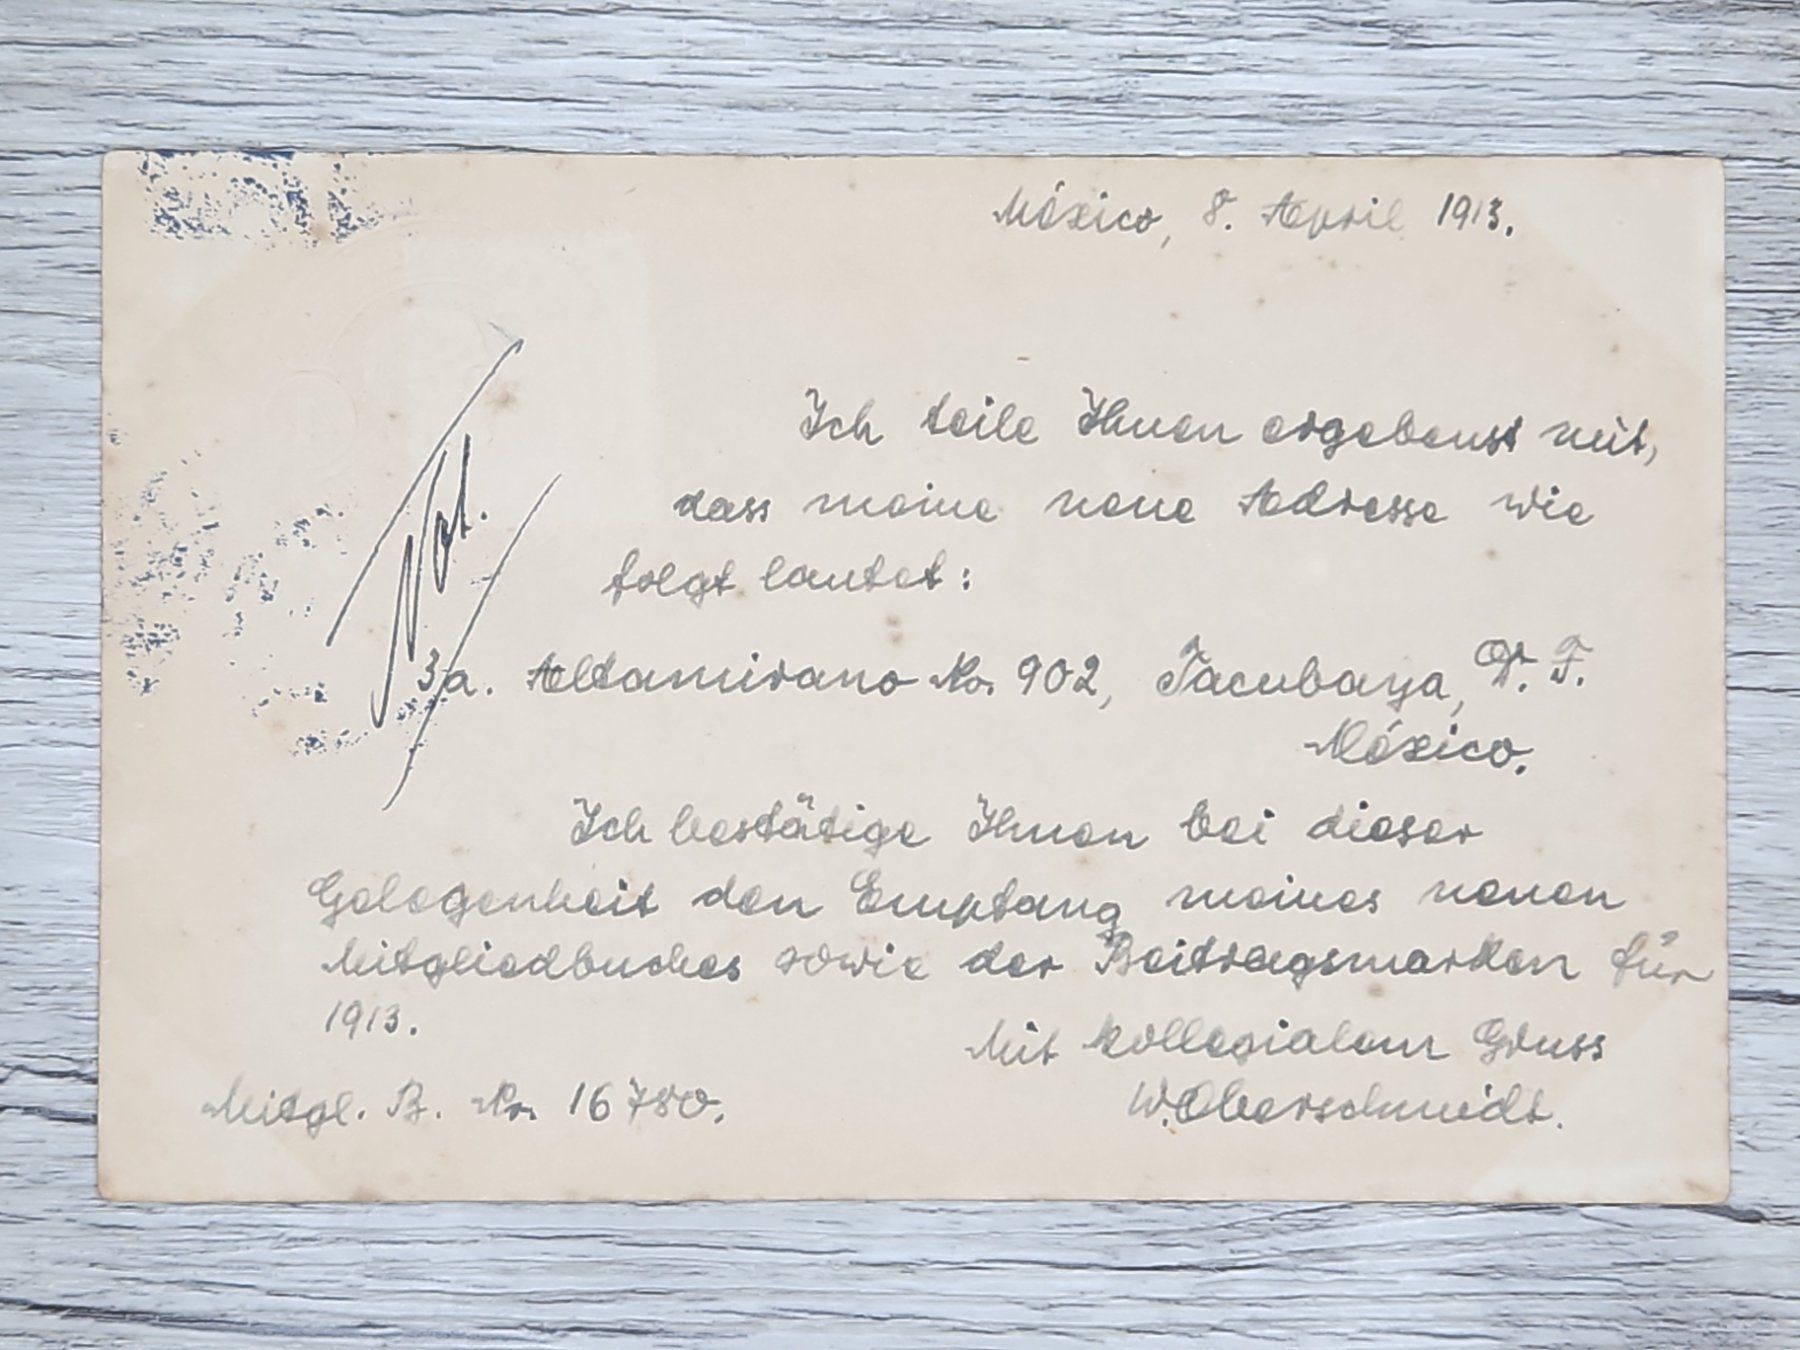 México, 8. April 1913.
Ich teile Ihnen ergebenst mit,
dass meine neue Adresse wie
folgt lautet:
Not.
3a. Altamirano No. 902, Tacubaya, D. F.
México.
Ich bestätige Ihnen bei dieser
Gelegenheit den Empfang meines neuen
Mitgliedbuches sowie der Beitragsmarken für
1913.
Mit kollegialem Gruss
Mitgl. B. No. 16780.
W. Oberschmidt.